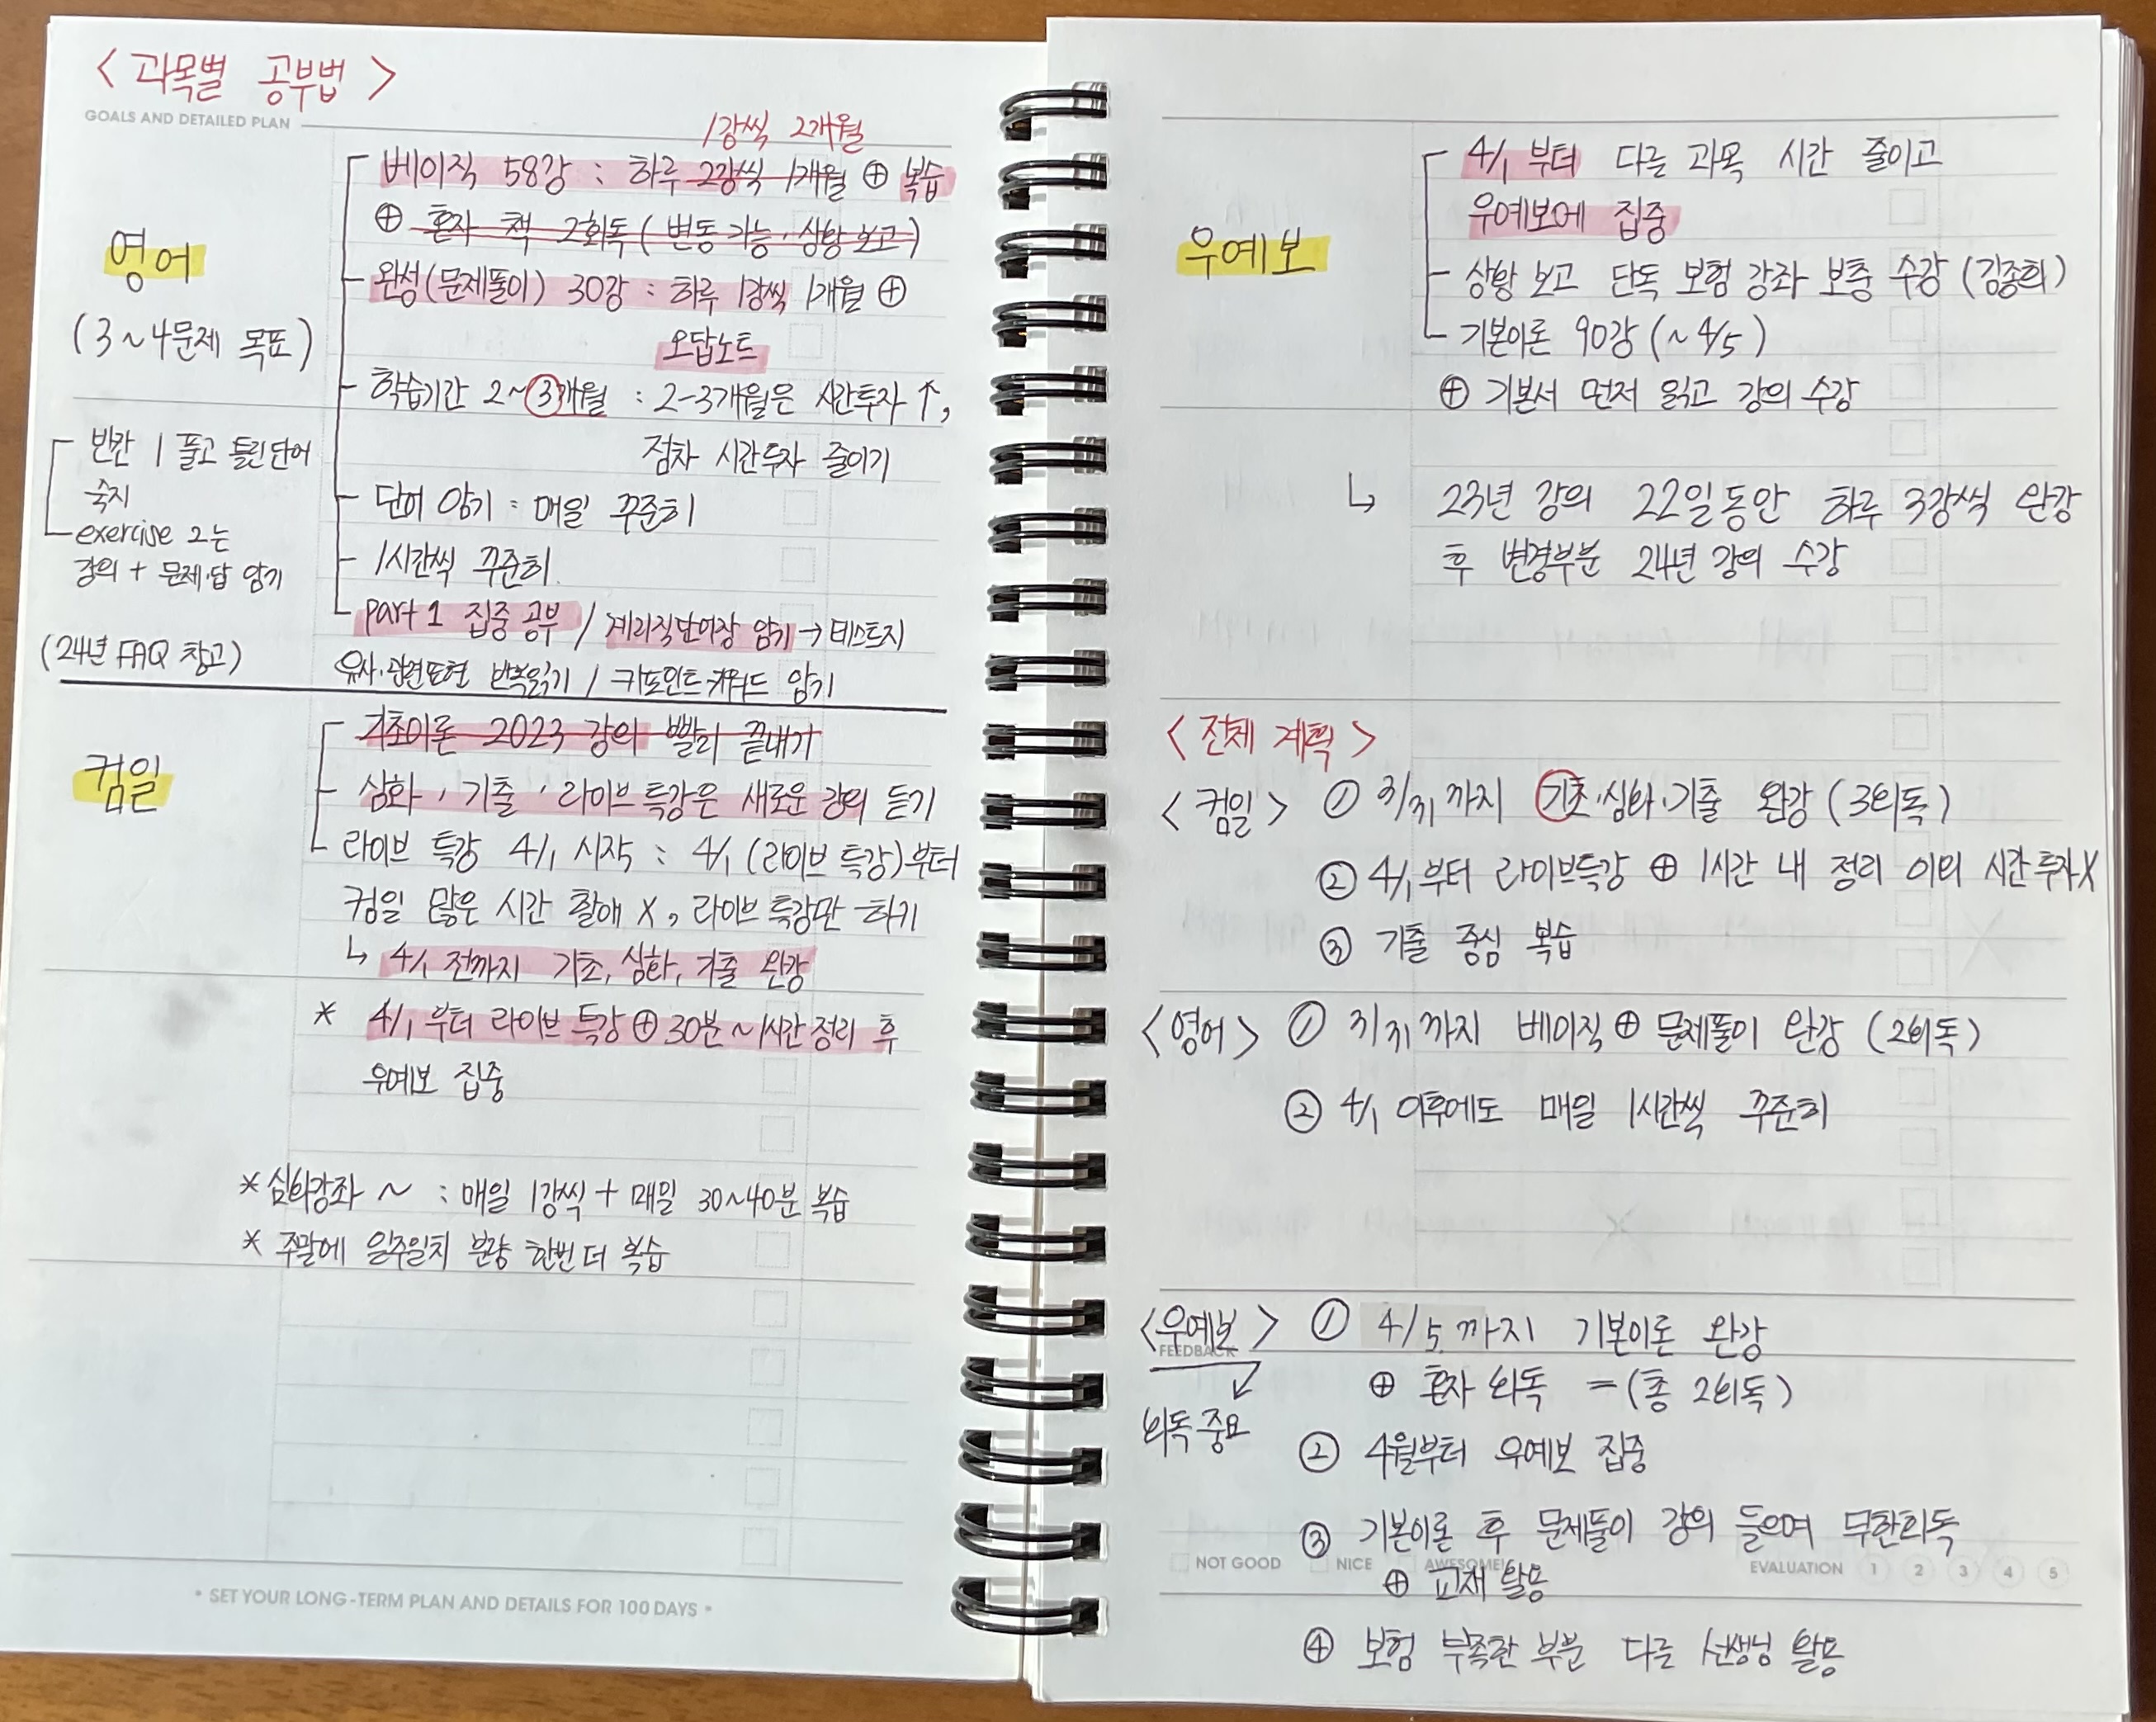 < 과목별 공부법 >
GOALS AND DETAILED PLAN
1강씩 2개월
영어
(3~4문제 목표)
베이직 58강 : 하루 2강씩 1개월 ⊕ 복습
⊕ 혼자 책 2회독 (변동 가능·상황 보고)
완성(문제풀이) 30강 : 하루 1강씩 1개월 ⊕
오답노트
학습기간 2~3개월 : 2-3개월은 시간투자 ↑,
점차 시간투자 줄이기
단어 암기 : 매일 꾸준히
1시간씩 꾸준히.
part 1 집중 공부 / 계리직단어장 암기 → 테스트지
유사·관련표현 반복읽기 / 키포인트·키워드 암기
빈칸 1 풀고 틀린단어
숙지
exercise 2는
강의 + 문제·답 암기
(24년 FAQ 참고)
컴일
기초이론 2023 강의 빨리 끝내기
심화, 기출, 라이브 특강은 새로운 강의 듣기
라이브 특강 4/1 시작 : 4/1 (라이브 특강)부터
컴일 많은 시간 할애 X, 라이브 특강만 하기
↳ 4/1 전까지 기초, 심화, 기출 완강
* 4/1 부터 라이브 특강 ⊕ 30분~1시간 정리 후
우예보 집중
* 심화강좌 ~ : 매일 1강씩 + 매일 30~40분 복습
* 주말에 일주일치 분량 한번 더 복습
* SET YOUR LONG-TERM PLAN AND DETAILS FOR 100 DAYS *
우예보
4/1 부터 다른 과목 시간 줄이고
우예보에 집중
상황 보고 단독 보험 강좌 보충 수강 (김종희)
기본이론 90강 (~4/5)
⊕ 기본서 먼저 읽고 강의 수강
↳ 23년 강의 22일동안 하루 3강씩 완강
후 변경부분 24년 강의 수강
< 전체 계획 >
< 컴일 > ① 3/31까지 기초·심화·기출 완강 (3회독)
② 4/1부터 라이브특강 ⊕ 1시간 내 정리 이외 시간투자X
③ 기출 중심 복습
< 영어 > ① 3/31까지 베이직 ⊕ 문제풀이 완강 (2회독)
② 4/1 이후에도 매일 1시간씩 꾸준히
< 우예보 > ① 4/5까지 기본이론 완강
FEEDBACK
⊕ 혼자 회독 = (총 2회독)
회독 중요
② 4월부터 우예보 집중
③ 기본이론 후 문제풀이 강의 들으며 무한회독
NOT GOOD NICE AWESOME! EVALUATION 1 2 3 4 5
⊕ 교재 활용
④ 보험 부족한 부분 다른 선생님 활용